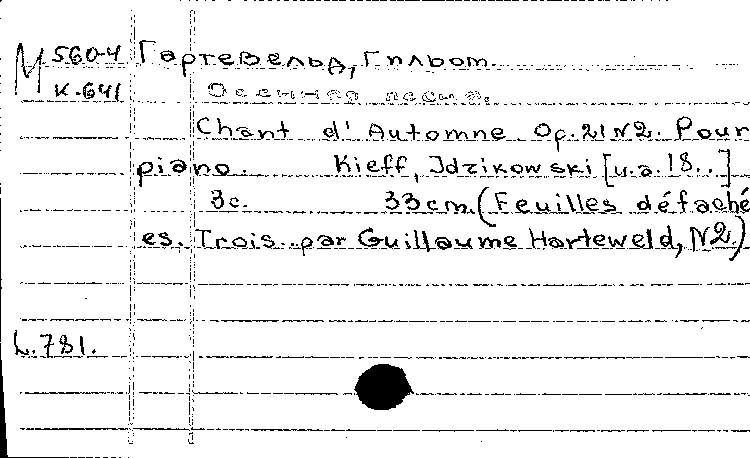 М 560-4 Гартевельд, Гильом.
К-641 Осенняя песня.
Chant d'Automne. Op. 21 N2. Pour
piano. Kieff, Idzikowski [u.a. 18..]
3с. 33cm. (Feuilles détaché
es. Trois.. par Guillaume Harteweld, N2.)
L.781.